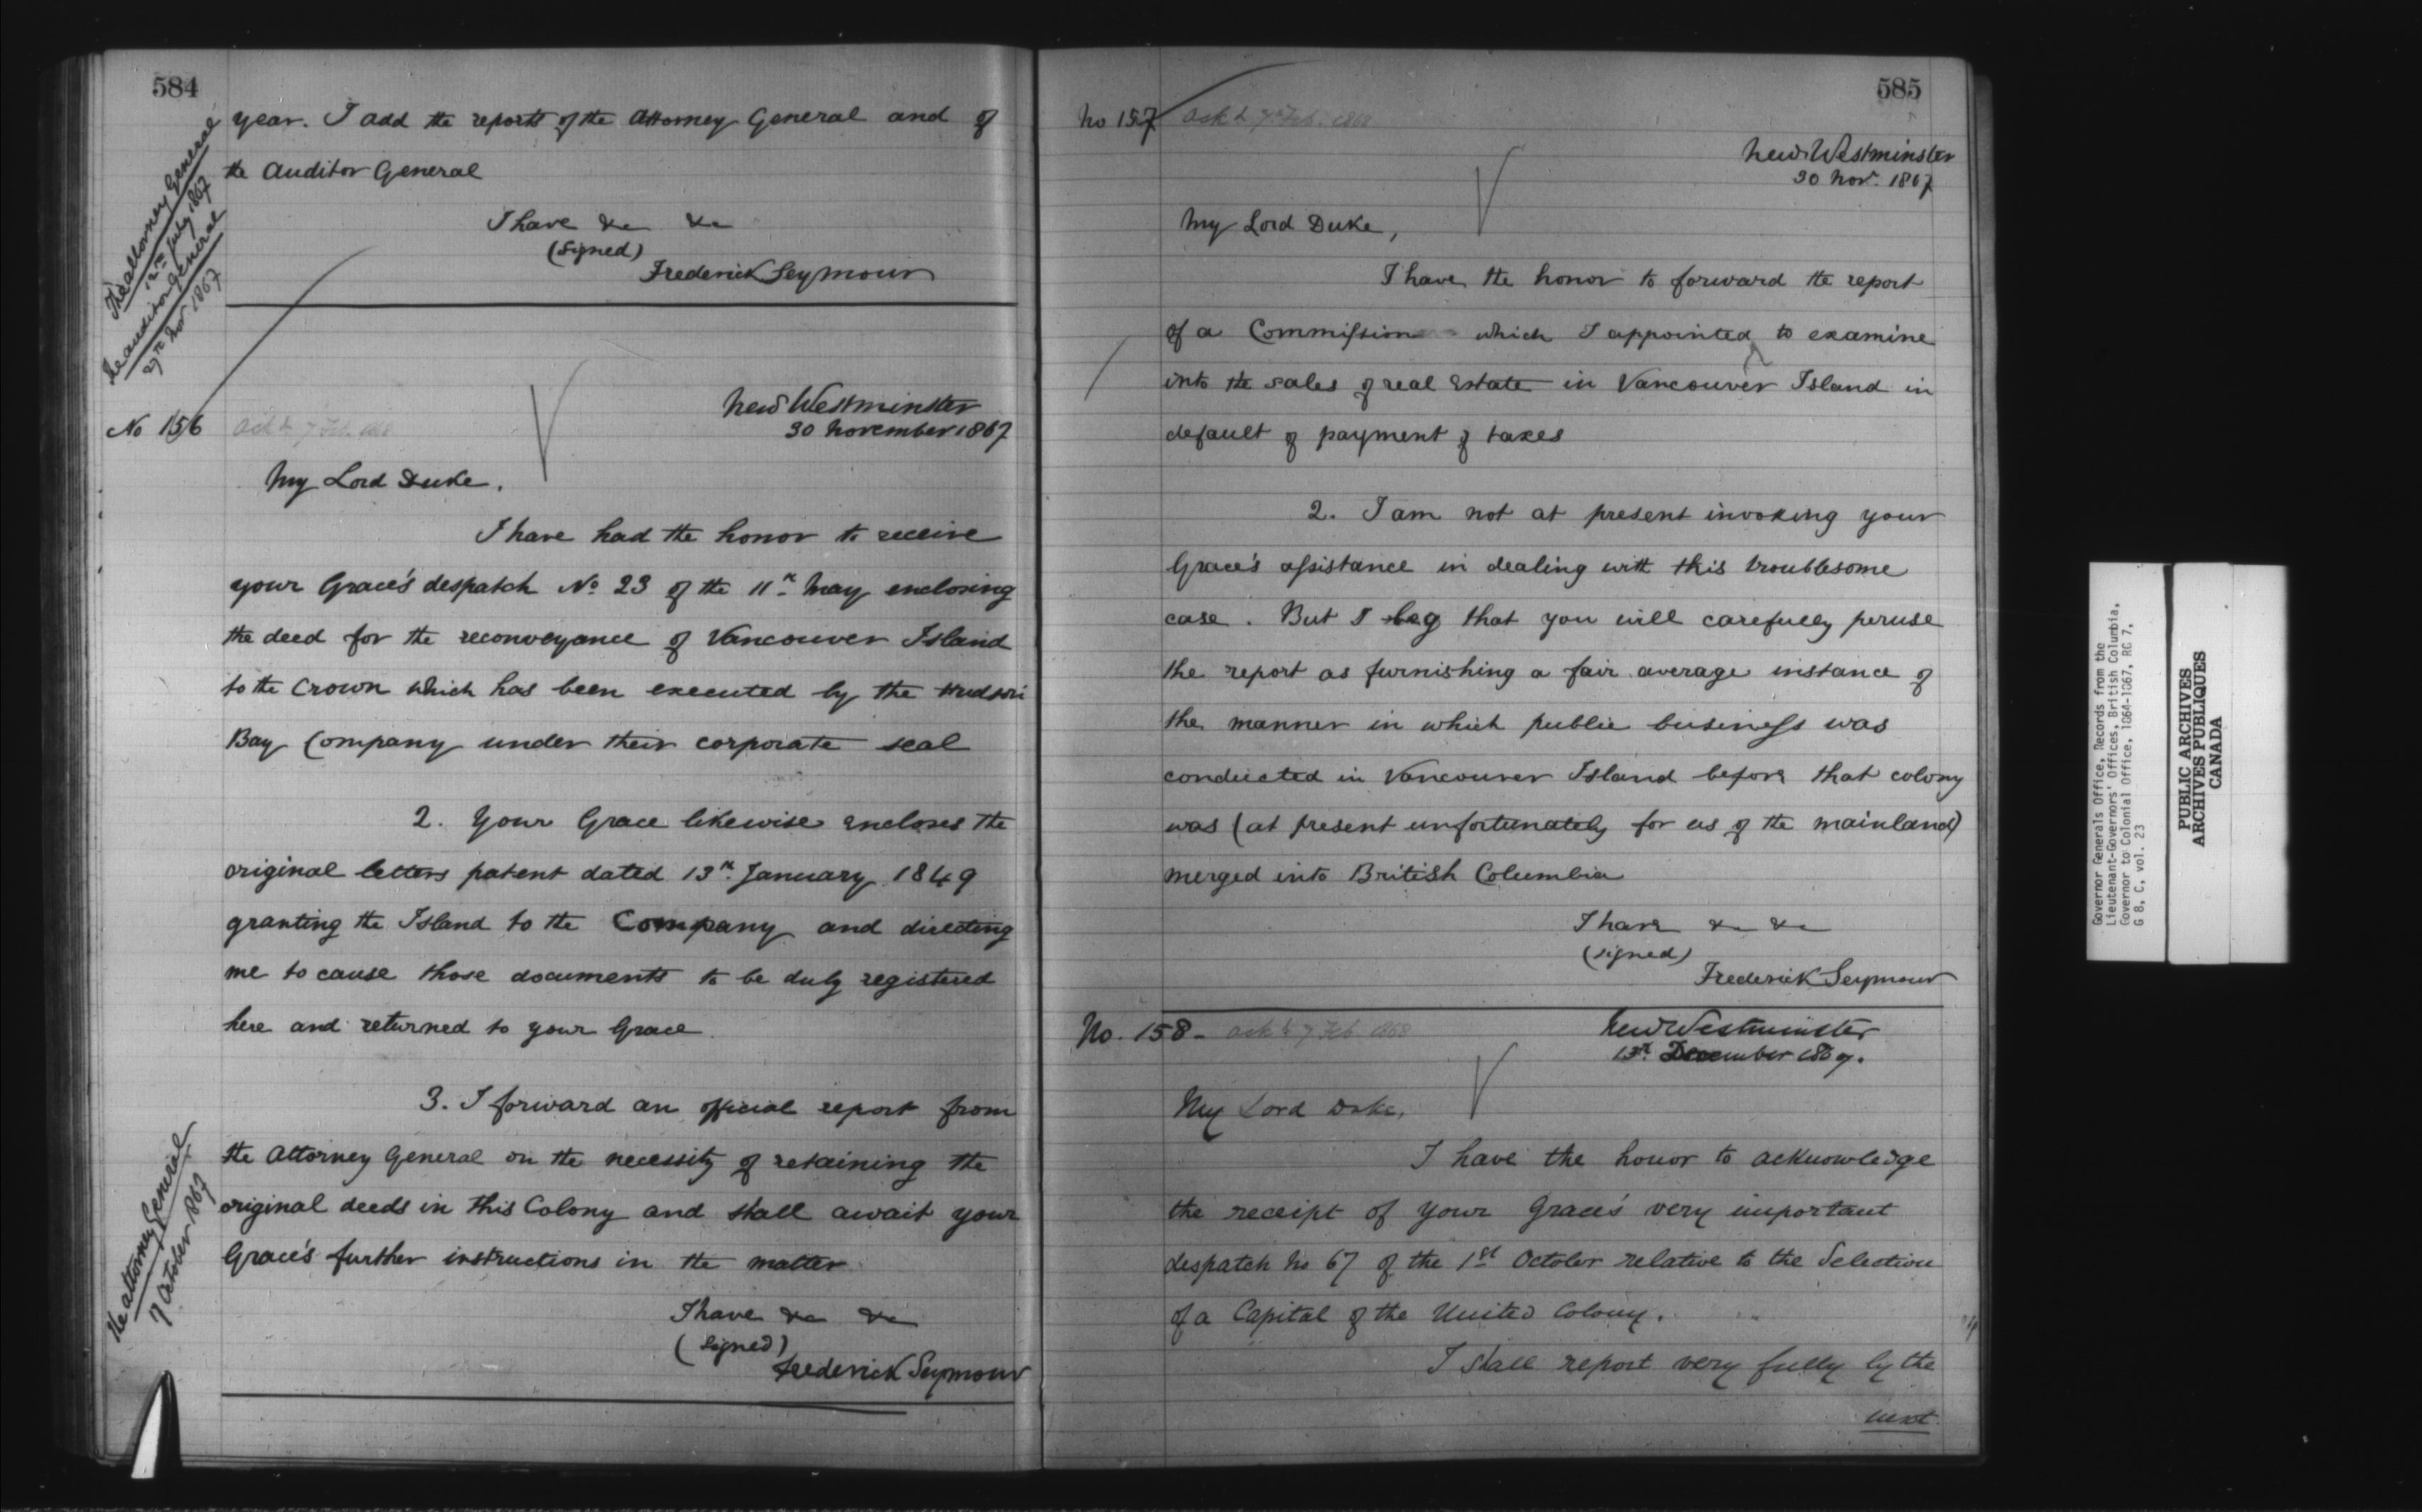 584
year. I add the reports of the Attorney General and of
the Auditor General
The Attorney General
12th July 1867
The Auditor General
27th Nov 1867
I have &c &c
(Signed)
Frederick Seymour
No 156
Ackd 7 Feb. 1868
New Westminster
30 November 1867
My Lord Duke.
I have had the honor to receive
your Grace's despatch No 23 of the 11th May enclosing
the deed for the reconveyance of Vancouver Island
to the Crown which has been executed by the Hudson
Bay Company under their corporate seal
2. Your Grace likewise encloses the
original letters patent dated 13th January 1849
granting the Island to the Company and directing
me to cause those documents to be duly registered
here and returned to your Grace
3. I forward an official report from
the Attorney General on the necessity of retaining the
original deeds in this Colony and shall await your
Grace's further instructions in the matter
The Attorney General
17 October 1867
I have &c &c
(Signed)
Frederick Seymour
585
No 157
Ackd 7th Feb. 1868
New Westminster
30 Nov. 1867
My Lord Duke,
I have the honor to forward the report
of a Commission which I appointed to examine
into the sales of real Estate in Vancouver Island in
default of payment of taxes
2. I am not at present invoking your
Grace's assistance in dealing with this troublesome
case. But I beg that you will carefully peruse
the report as furnishing a fair average instance of
the manner in which public business was
conducted in Vancouver Island before that colony
was (at present unfortunately for us of the mainland)
merged into British Columbia
I have &c &c
(signed)
Frederick Seymour
No. 158-
Ackd 7 Feb 1868
New Westminster
13th December 1867.
My Lord Duke,
I have the honor to acknowledge
the receipt of your Grace's very important
despatch No 67 of the 1st October relative to the Selection
of a Capital of the United Colony.
I shall report very fully by the
next
Governor Generals Office, Records from the
Lieutenant-Governors' Offices, British Columbia,
Governor to Colonial Office, 1864-1867, RG 7,
G 8, C, vol. 23
PUBLIC ARCHIVES
ARCHIVES PUBLIQUES
CANADA